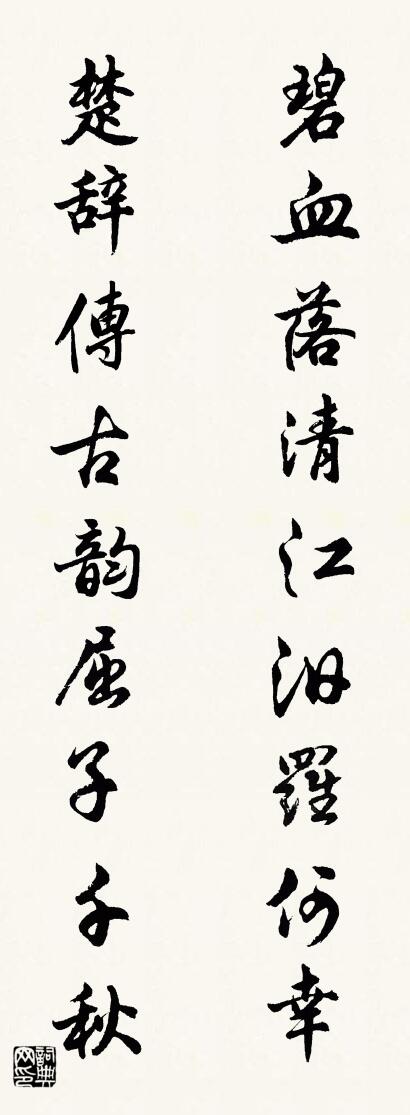 碧血落清江汨羅何幸
楚辞傳古韵屈子千秋
詞典网印